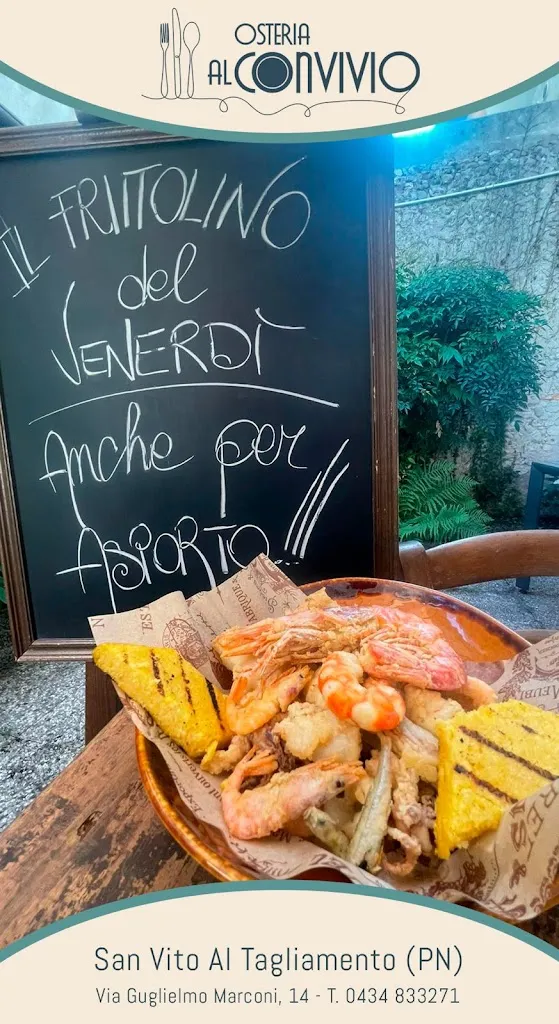 OSTERIA
AL CONVIVIO
IL FRITTOLINO
del
VENERDÌ
Anche per
ASPORTO
San Vito Al Tagliamento (PN)
Via Guglielmo Marconi, 14 - T. 0434 833271